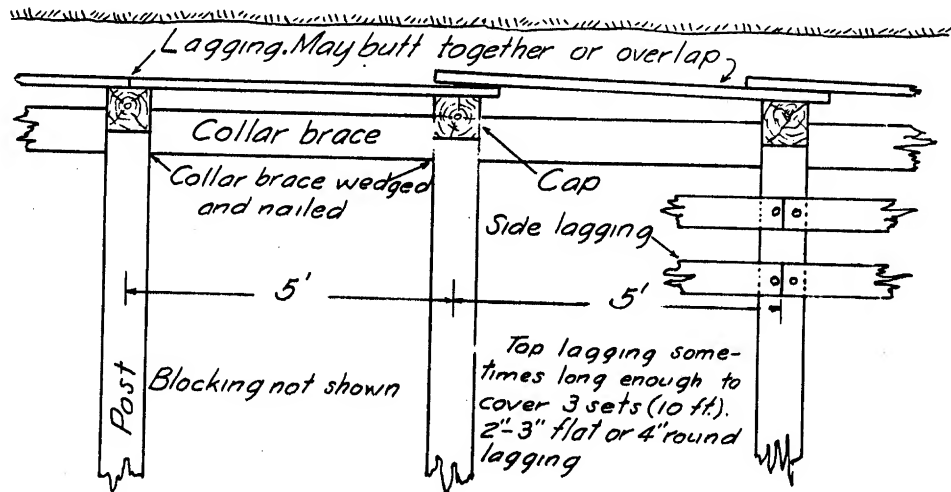 Lagging. May butt together or overlap
Collar brace
Collar brace wedged
and nailed
Cap
Side lagging
5'
5'
Post
Blocking not shown
Top lagging some-
times long enough to
cover 3 sets (10 ft).
2"-3" flat or 4" round
lagging